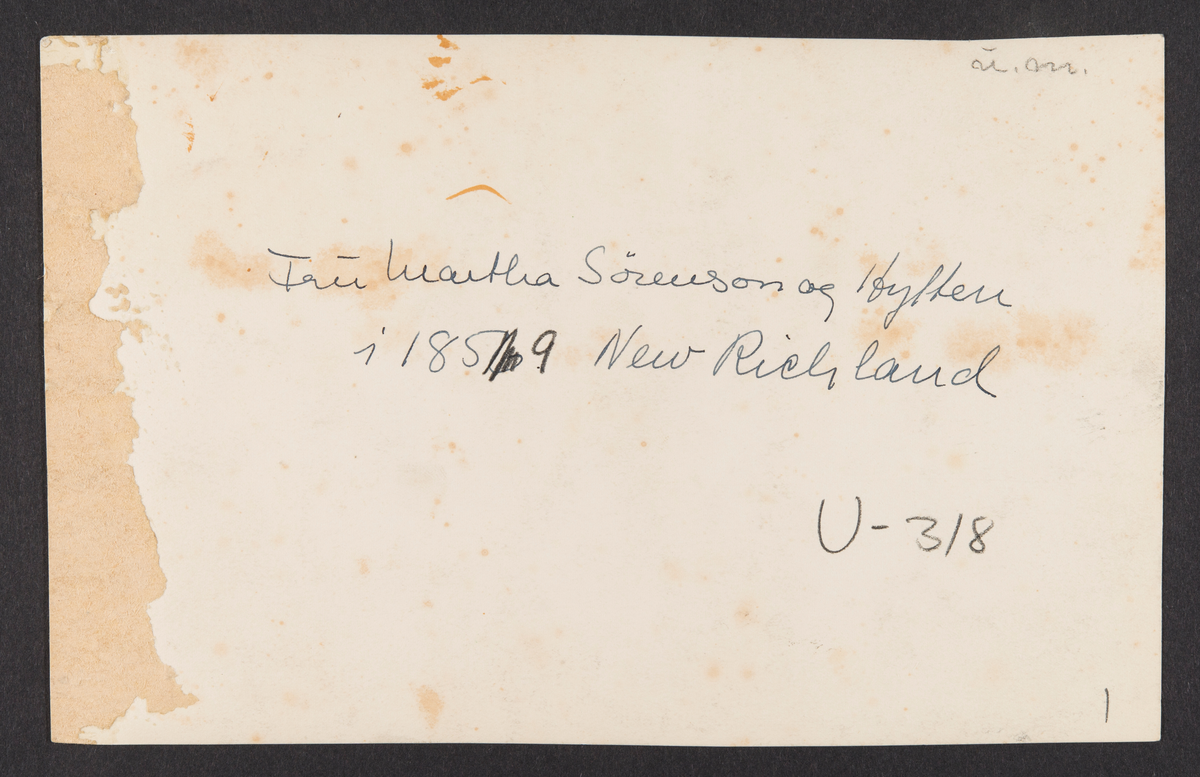 u. nr.
Frū Martha Sörenson og Hytten
i 1859 New Richland
U-318
1